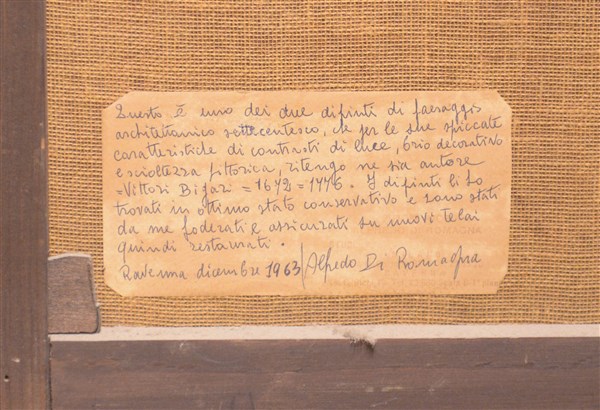 Questo è uno dei due dipinti di paesaggio
architettonico settecentesco, che per le sue spiccate
caratteristiche di contrasti di luce, brio decorativo
e scioltezza pittorica, ritengo ne sia autore
=Vittori Bigari = 1692=1776. I dipinti li ho
trovati in ottimo stato conservativo e sono stati
da me foderati e assicurati su nuovi telai
quindi restaurati.
Ravenna dicembre 1963/Alfredo Di Romagna